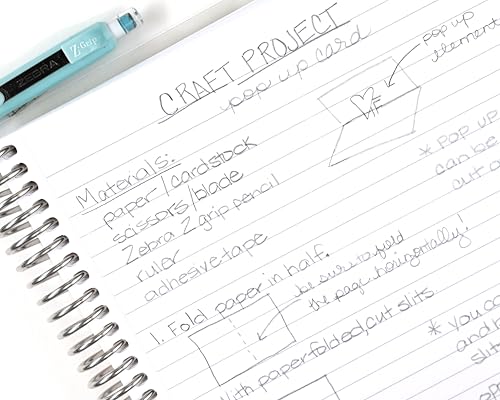 ZEBRA Z-Grip
CRAFT PROJECT
pop up card
pop up
element
Materials:
paper/cardstock
scissors/blade
Zebra Z grip pencil
ruler
adhesive tape
* POP UP
can be
cut o
1. Fold paper in half.
be sure to fold
the page horizontally!
With paper folded, cut slits.
* you ca
and
slit